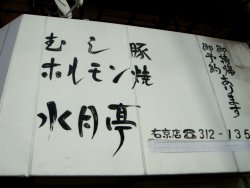 むし豚
ホルモン焼
水月亭
御持帰あります
御予約
右京店☎312-135